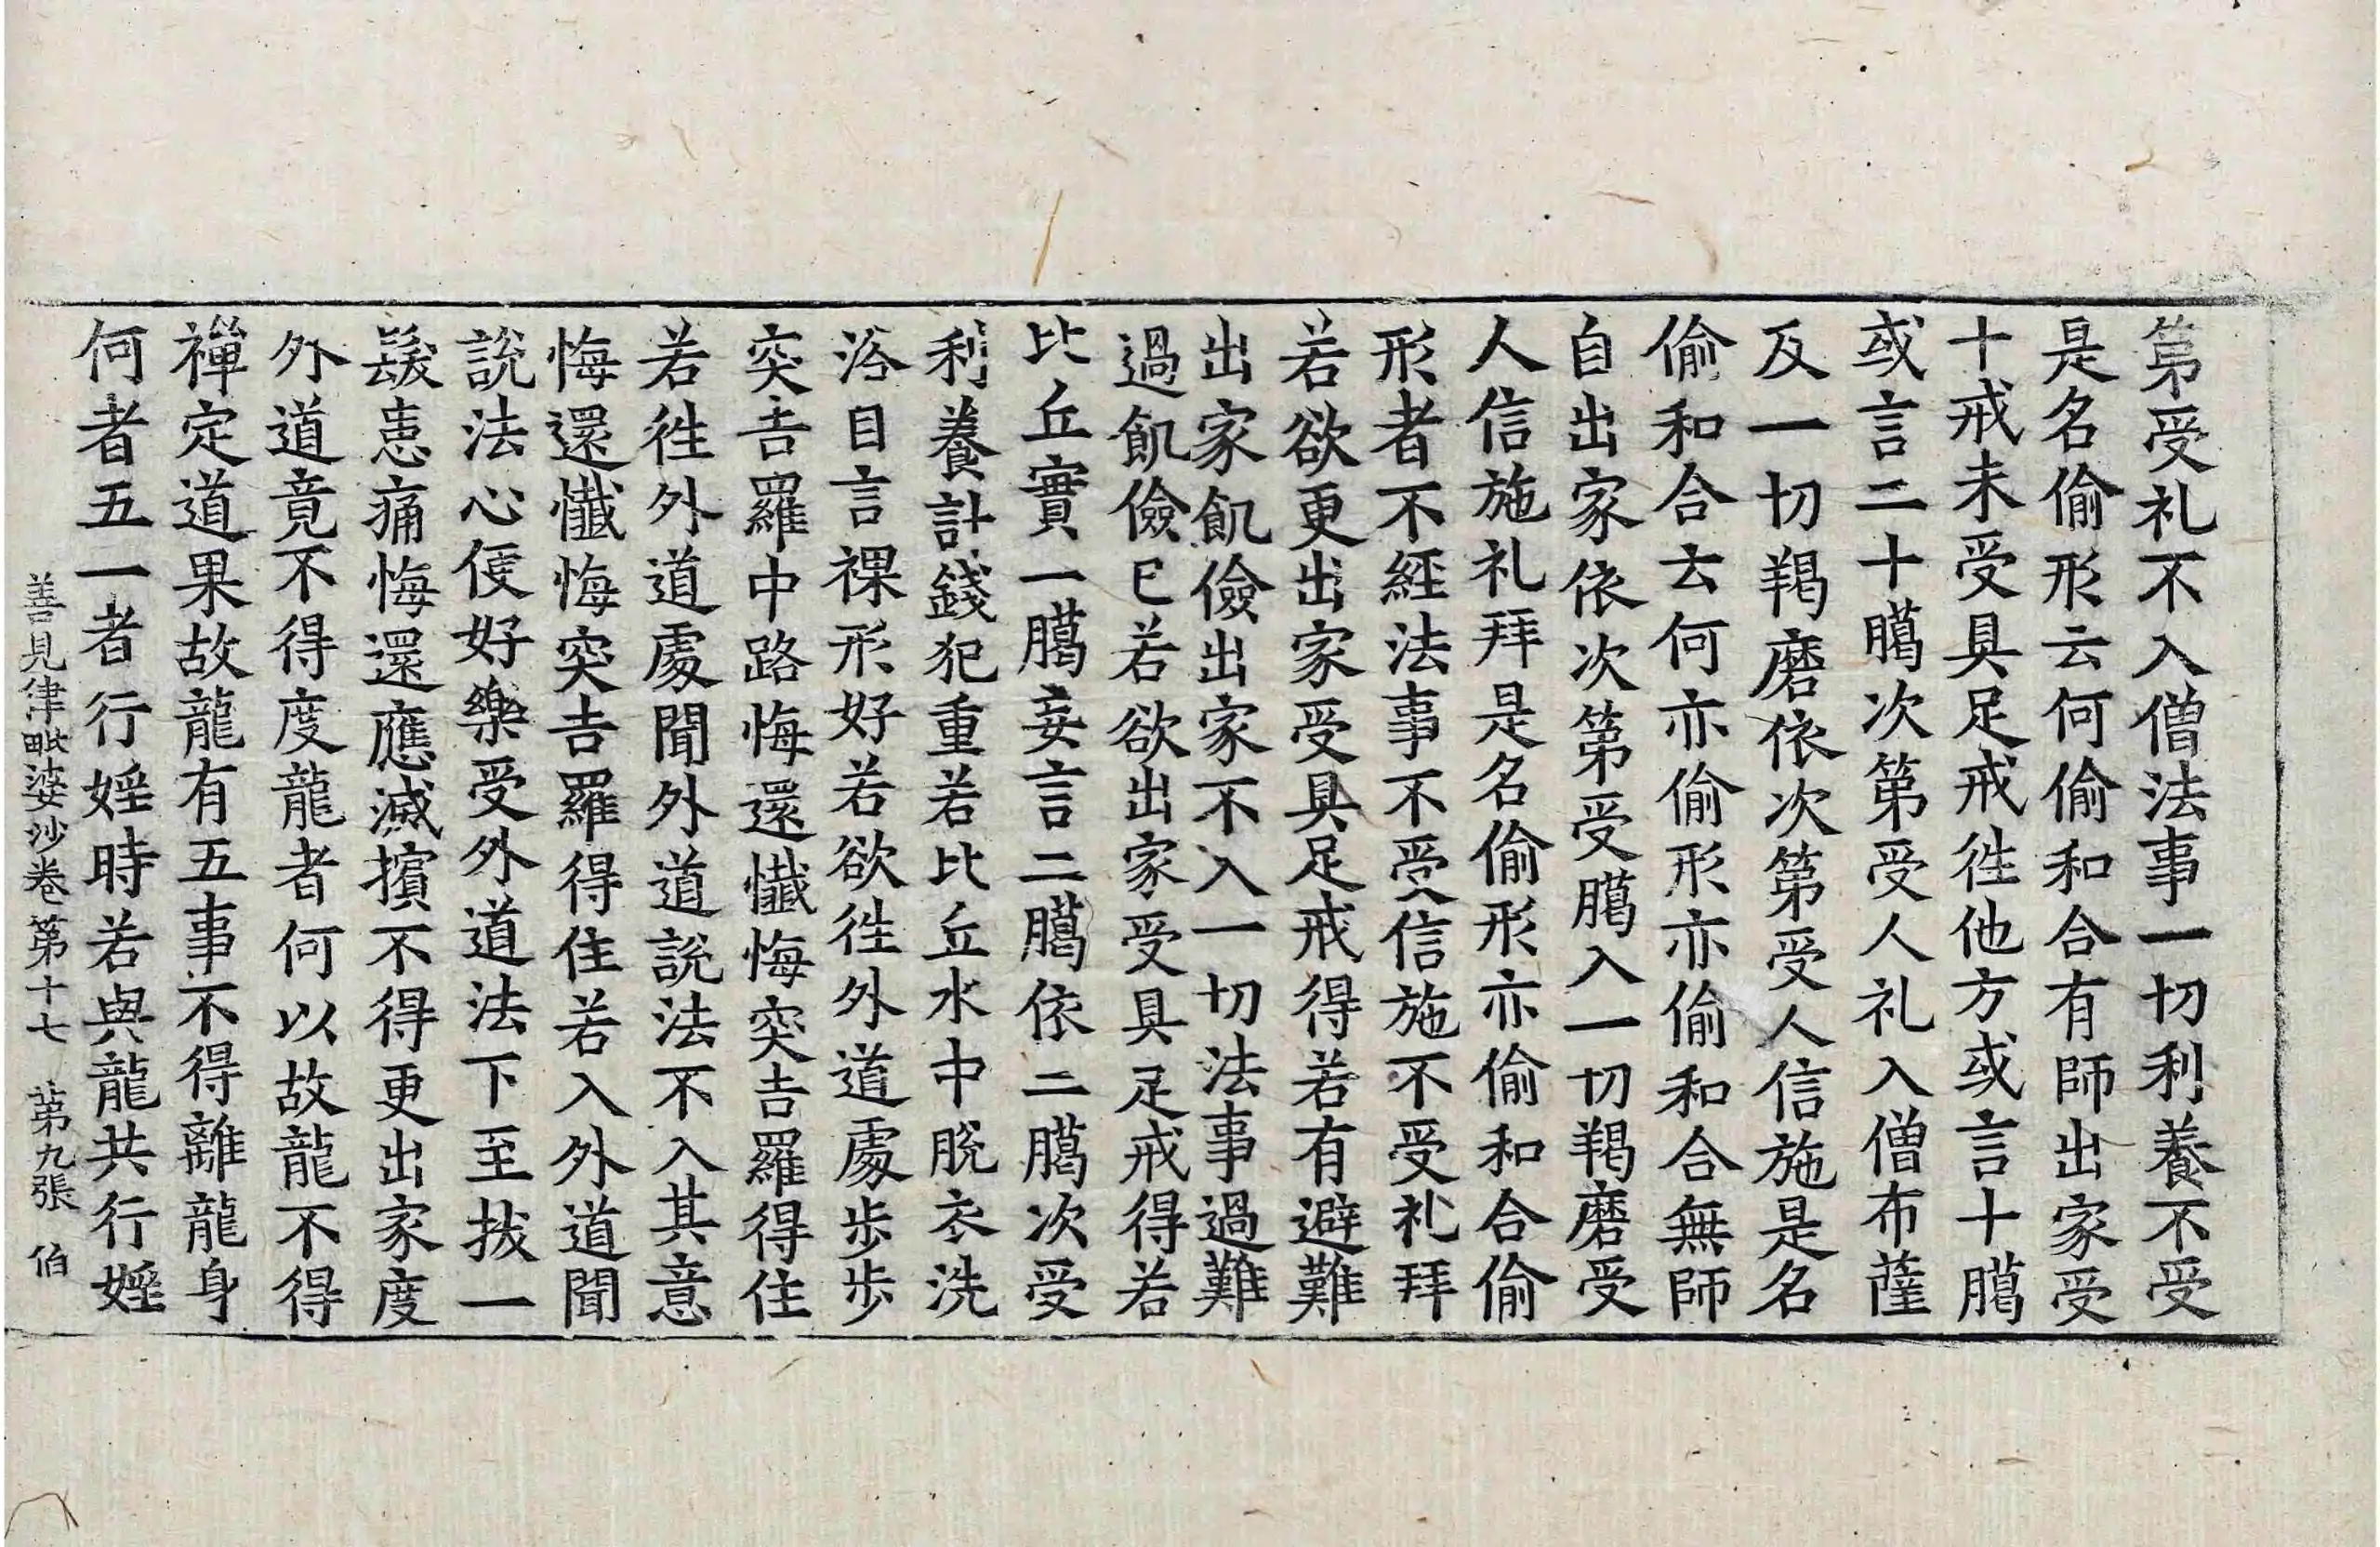 第受礼不入僧法事一切利養不受
是名偷形云何偷和合有師出家受
十戒未受具足戒徃他方或言十臈
或言二十臈次第受人礼入僧布薩
及一切羯磨依次第受人信施是名
偷和合云何亦偷形亦偷和合無師
自出家依次第受臈入一切羯磨受
人信施礼拜是名偷形亦偷和合偷
形者不經法事不受信施不受礼拜
若欲更出家受具足戒得若有避難
出家飢儉出家不入一切法事過難
過飢儉已若欲出家受具足戒得若
比丘實一臈妄言二臈依二臈次受
利養計錢犯重若比丘水中脫衣洗
浴自言裸形好若欲徃外道處步步
突吉羅中路悔還懺悔突吉羅得住
若徃外道處聞外道說法不入其意
悔還懺悔突吉羅得住若入外道聞
說法心便好樂受外道法下至拔一
髮患痛悔還應滅擯不得更出家度
外道竟不得度龍者何以故龍不得
禪定道果故龍有五事不得離龍身
何者五一者行婬時若與龍共行婬
善見律毗婆沙卷第十七 第九張 伯